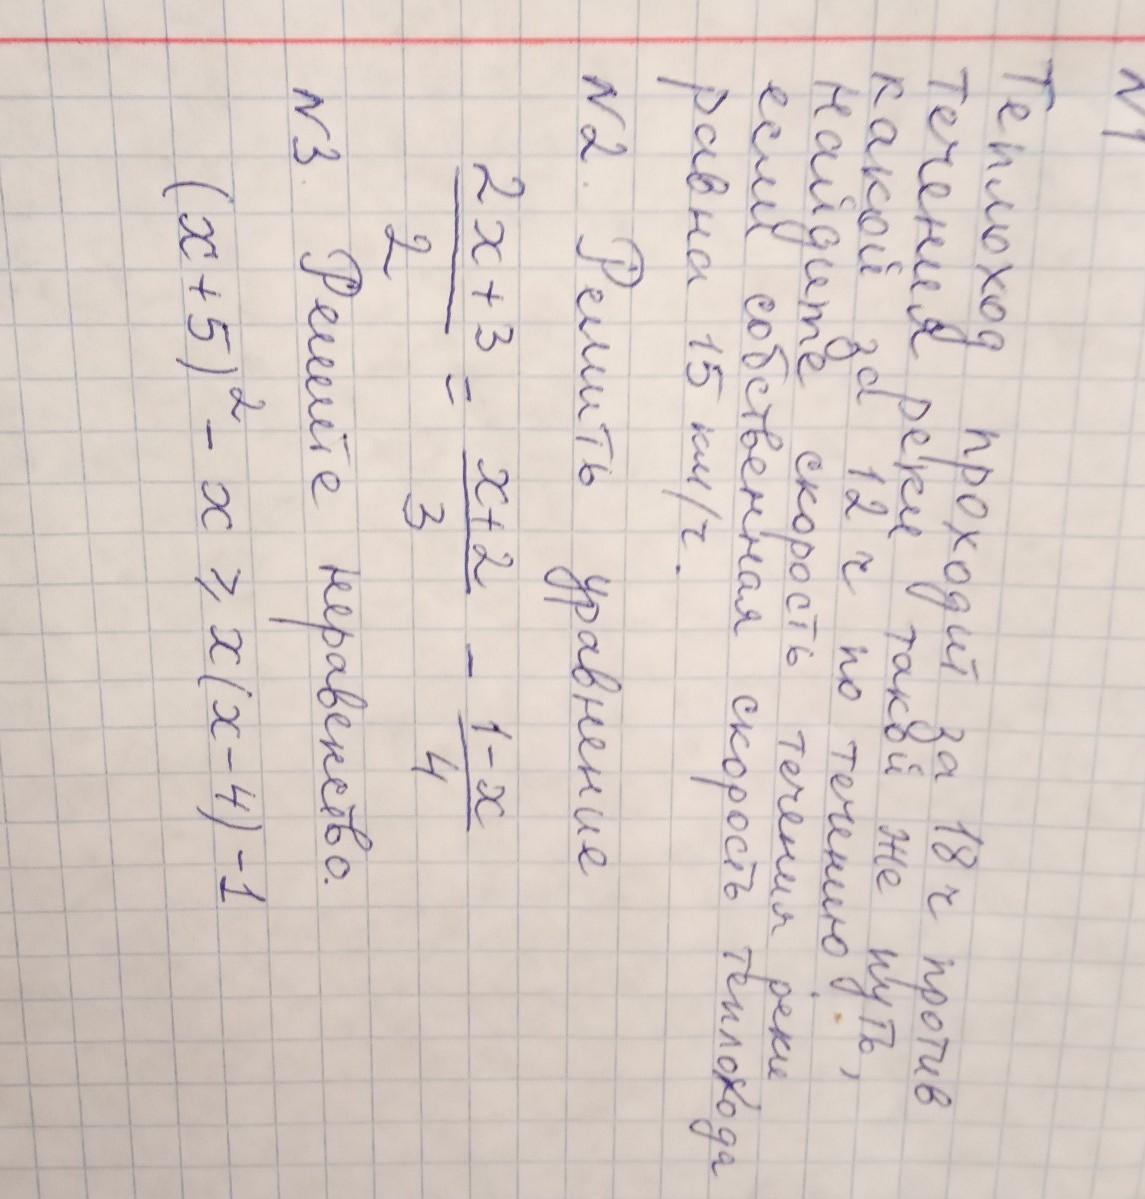 N1
Теплоход проходит за 18 ч против
течения реки такой же путь,
какой за 12 ч по течению.
Найдите скорость течения реки
если собственная скорость теплохода
равна 15 км/ч.
N2. Решить уравнение
(2x+3)/2 = (x+2)/3 - (1-x)/4
N3. Решите неравенство.
(x+5)² - x ⩾ x(x-4)-1